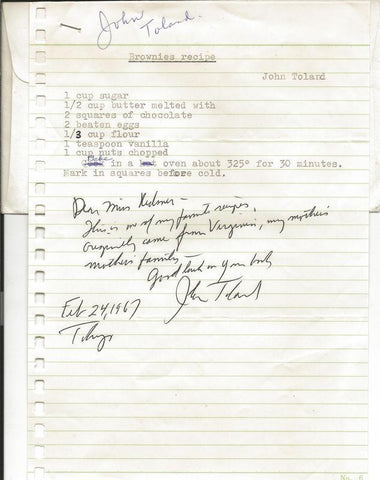 John Toland.
Brownies recipe
John Toland
1 cup sugar
1/2 cup butter melted with
2 squares of chocolate
2 beaten eggs
1/3 cup flour
1 teaspoon vanilla
1 cup nuts chopped
Bake in a oven about 325° for 30 minutes.
Mark in squares before cold.
Dear Miss
This is one of my favorite recipes,
originally came from Virginia, my mother's
mother's family—
Good luck on your book
John Toland
Feb 24, 1967
Tokyo
No. 6